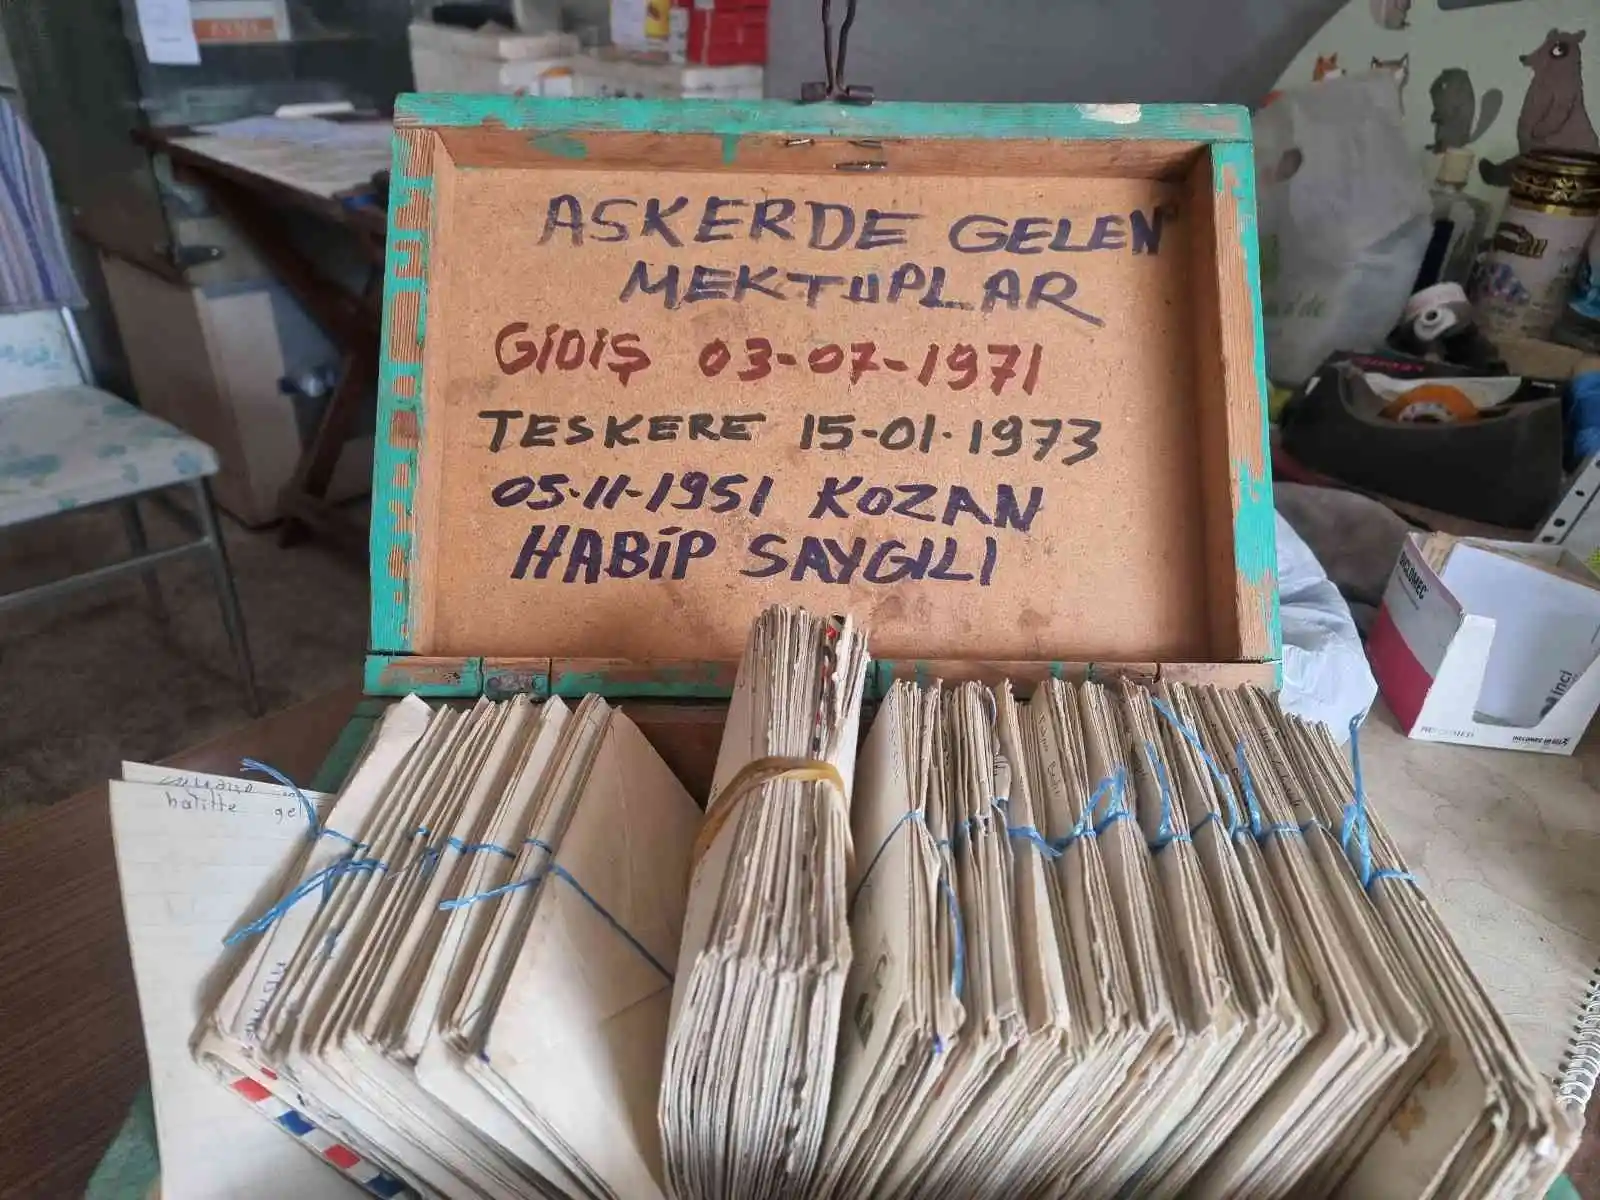 ASKERDE GELEN
MEKTUPLAR
GİDİŞ 03-07-1971
TESKERE 15-01-1973
05-11-1951 KOZAN
HABİP SAYGILI
halitte gel